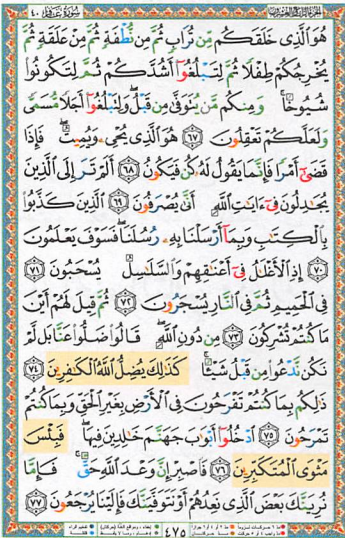 سورة غافر ٤٠
هُوَ الَّذِي خَلَقَكُم مِّن تُرَابٍ ثُمَّ مِن نُّطْفَةٍ ثُمَّ مِنْ عَلَقَةٍ ثُمَّ
يُخْرِجُكُمْ طِفْلًا ثُمَّ لِتَبْلُغُوا أَشُدَّكُمْ ثُمَّ لِتَكُونُوا
شُيُوخًا ۚ وَمِنكُم مَّن يُتَوَفَّىٰ مِن قَبْلُ ۖ وَلِتَبْلُغُوا أَجَلًا مُّسَمًّى
وَلَعَلَّكُمْ تَعْقِلُونَ ٦٧ هُوَ الَّذِي يُحْيِي وَيُمِيتُ ۖ فَإِذَا
قَضَىٰ أَمْرًا فَإِنَّمَا يَقُولُ لَهُ كُن فَيَكُونُ ٦٨ أَلَمْ تَرَ إِلَى الَّذِينَ
يُجَادِلُونَ فِي آيَاتِ اللَّهِ أَنَّىٰ يُصْرَفُونَ ٦٩ الَّذِينَ كَذَّبُوا
بِالْكِتَابِ وَبِمَا أَرْسَلْنَا بِهِ رُسُلَنَا ۖ فَسَوْفَ يَعْلَمُونَ
٧٠ إِذِ الْأَغْلَالُ فِي أَعْنَاقِهِمْ وَالسَّلَاسِلُ يُسْحَبُونَ ٧١
فِي الْحَمِيمِ ثُمَّ فِي النَّارِ يُسْجَرُونَ ٧٢ ثُمَّ قِيلَ لَهُمْ أَيْنَ
مَا كُنتُمْ تُشْرِكُونَ ٧٣ مِن دُونِ اللَّهِ ۖ قَالُوا ضَلُّوا عَنَّا بَل لَّمْ
نَكُن نَّدْعُو مِن قَبْلُ شَيْئًا ۚ كَذَٰلِكَ يُضِلُّ اللَّهُ الْكَافِرِينَ ٧٤
ذَٰلِكُم بِمَا كُنتُمْ تَفْرَحُونَ فِي الْأَرْضِ بِغَيْرِ الْحَقِّ وَبِمَا كُنتُمْ
تَمْرَحُونَ ٧٥ ادْخُلُوا أَبْوَابَ جَهَنَّمَ خَالِدِينَ فِيهَا ۖ فَبِئْسَ
مَثْوَى الْمُتَكَبِّرِينَ ٧٦ فَاصْبِرْ إِنَّ وَعْدَ اللَّهِ حَقٌّ ۚ فَإِمَّا
نُرِيَنَّكَ بَعْضَ الَّذِي نَعِدُهُمْ أَوْ نَتَوَفَّيَنَّكَ فَإِلَيْنَا يُرْجَعُونَ ٧٧
٤٧٥